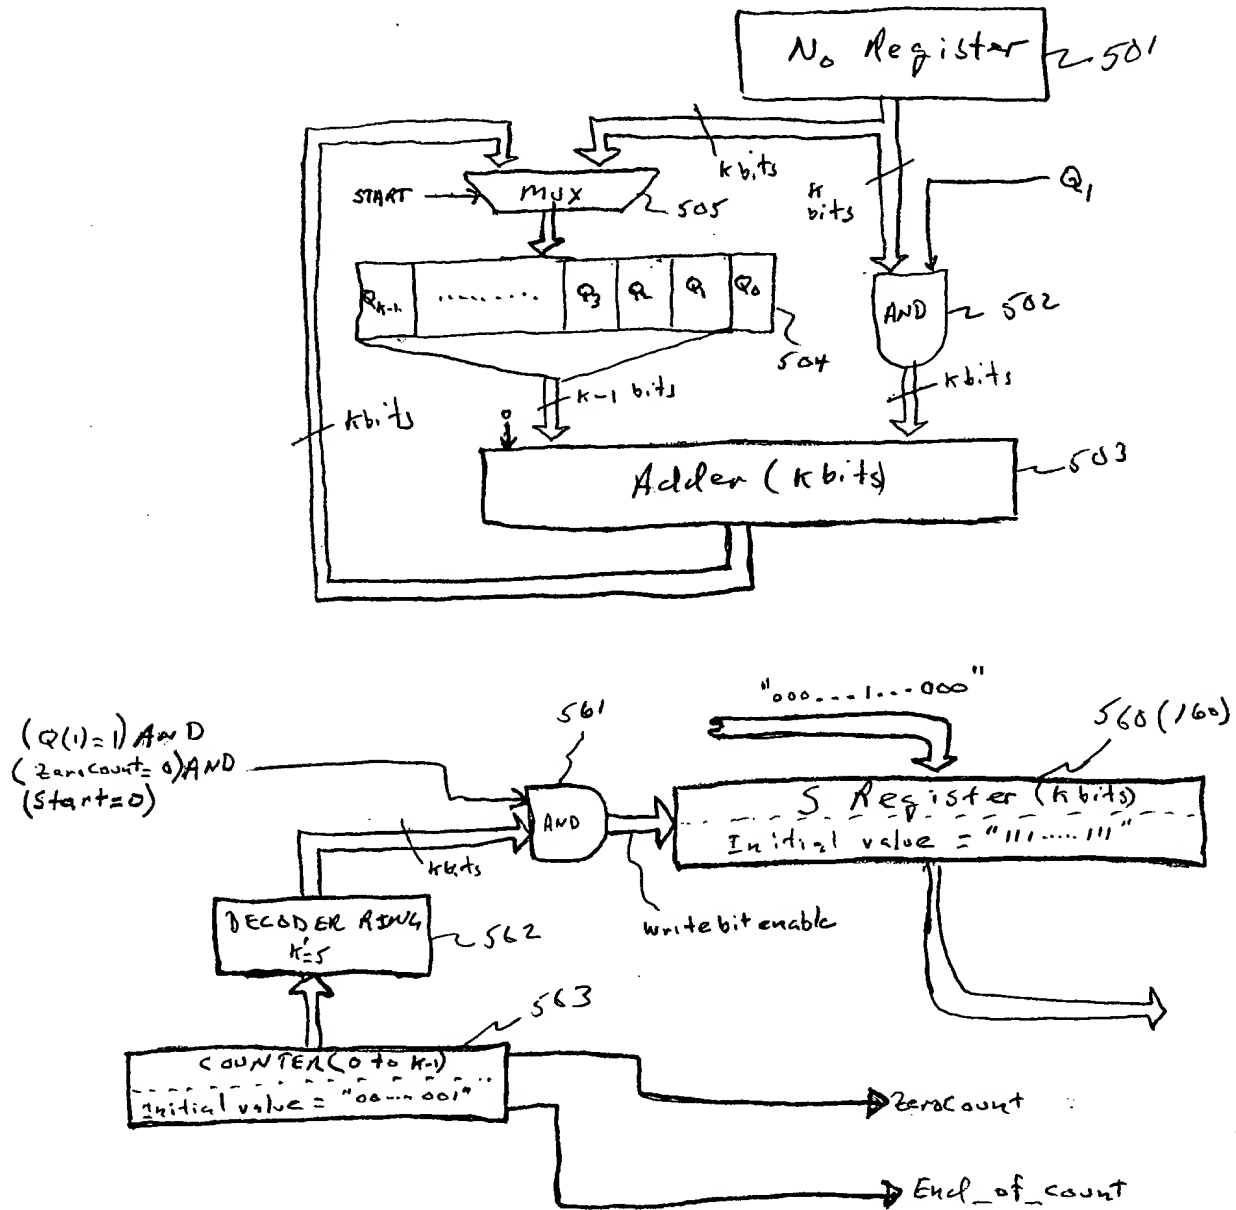 N₀ Register
501
K bits
K
bits
Q₁
START
MUX
505
QK-1
.........
Q3
Q2
Q1
Q0
504
AND
502
K-1 bits
K bits
K bits
0
Adder (K bits)
503
"000...1...000"
560 (160)
561
(Q(1)=1) AND
(ZeroCount=0) AND
(Start=0)
AND
S Register (K bits)
Initial value = "111.....111"
K bits
write bit enable
DECODER RING
K'=5
562
563
COUNTER (0 to K-1)
Initial value = "00...001"
ZeroCount
End_of_count